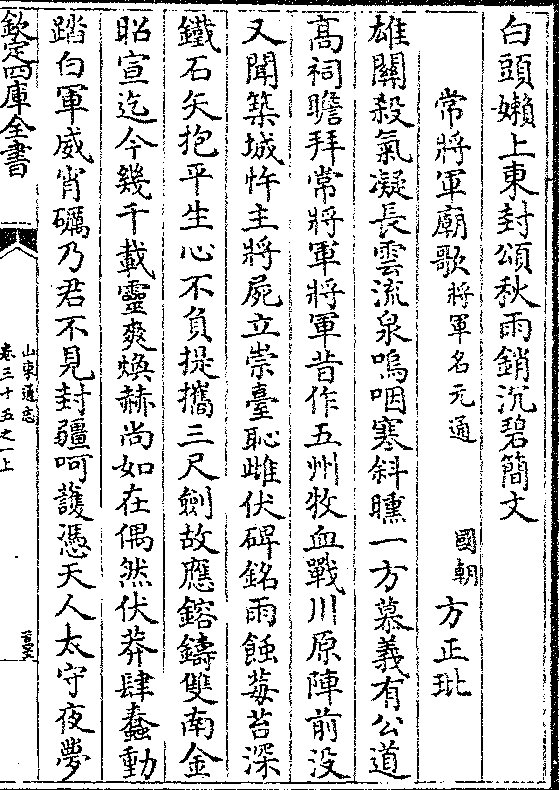 白頭嬾上東封頌秋雨銷沉碧簡文
常將軍廟歌將軍名元通 國朝方正玭
雄關殺氣凝長雲流泉嗚咽塞斜曛一方慕義有公道
高祠瞻拜常將軍將軍昔作五州牧血戰川原陣前没
又聞築城忤主將屍立崇臺恥雌伏碑銘雨蝕莓苔深
鐵石矢抱平生心不負提攜三尺劍故應鎔鑄雙南金
昭宣迄今幾千載靈爽煥赫尚如在偶然伏莽肆蠢動
踏白軍威肯礪乃君不見封疆呵護憑天人太守夜夢
欽定四庫全書
山東通志
卷三十五之一上